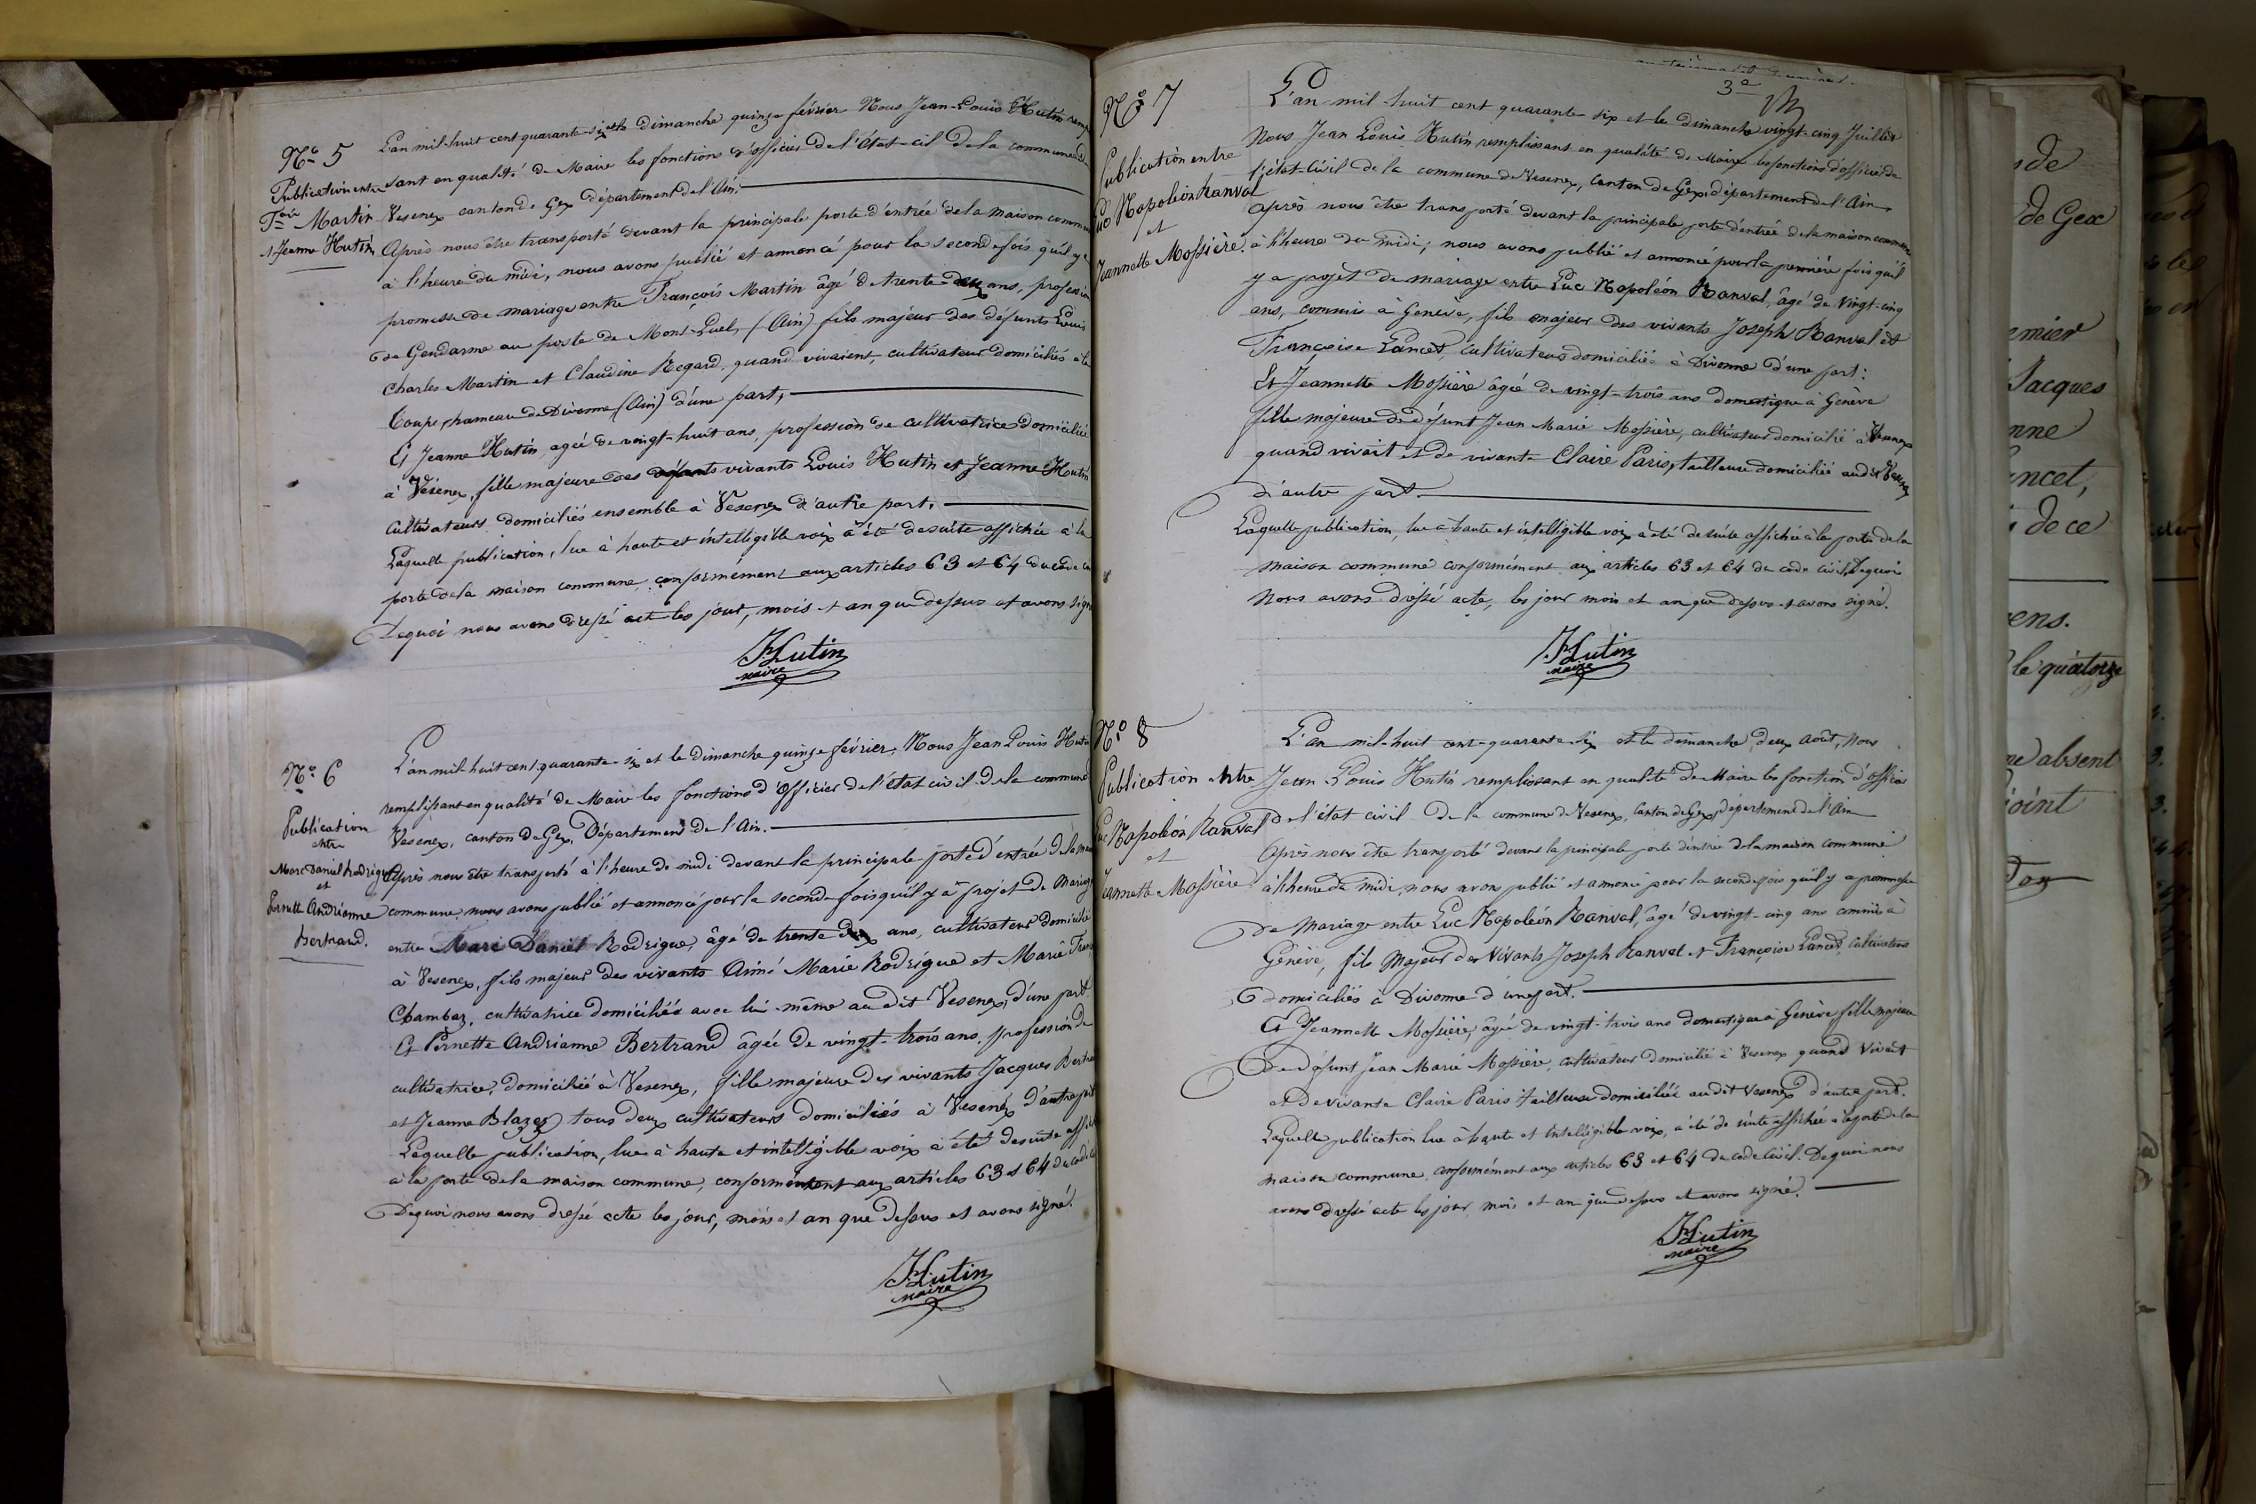 N.o 5
Publication entre
F.ois Martin
et Jeanne Hutin
L'an mil-huit cent quarante-six et le dimanche quinze février Nous Jean-Louis Hutin remp
sant en qualité de Maire les fonctions d'officier de l'état-cil de la commune de
Vesenex canton de Gex département de l'Ain.
Après nous être transporté devant la principale porte d'entrée de la maison commune
à l'heure du midi, nous avons publié et annoncé pour la seconde fois qu'il y a
promesse de mariage entre François Martin âgé de trente deux ans, profession
de Gendarme au poste de Mont-Luel, (Ain) fils majeur des défunts Louis
Charles Martin et Claudine Regard, quand vivaient, cultivateurs domiciliés à la
hameau de Divonne (Ain) d'une part,
Et Jeanne Hutin, agée de vingt-huit ans, profession de cultivatrice domiciliée
à Vésenex, fille majeure des vivants Louis Hutin et Jeanne Hutin
cultivateurs domiciliés ensemble à Vesenex d'autre part.
Laquelle publication, lue à haute et intelligible voix à été de suite affichée à la
porte de la maison commune, conformément aux articles 63 et 64 du code
Dequoi nous avons dressé acte les jour, mois et an que dessus et avons signé
JLutin
maire
N.o 6
Publication
entre
Marc Daniel Rodrigue
et
Pernette Andrianne
Bertrand.
L'an mil-huit cent quarante-six et le dimanche quinze février, Nous Jean Louis Hutin
remplissant en qualité de Maire les fonctions d'Officier de l'état civil de la commune
Vesenex, canton de Gex, Département de l'Ain.
Après nous être transporté à l'heure de midi devant la principale porte d'entrée de la
commune, nous avons publié et annoncé pour la seconde fois qu'il y a projet de mariage
entre Marc Daniel Rodrigue, âgé de trente deux ans, cultivateur domicilié
à Vesenex, fils majeur des vivants Aimé Marie Rodrigue et Marie
Chambaz, cultivatrice domiciliés avec lui-même au dit Vesenex, d'une part
Et Pernette Andrianne Bertrand âgée de vingt-trois ans, profession de
cultivatrice, domiciliée à Vesenex, fille majeure des vivants Jacques Bertrand
et Jeanne Blazes tous deux cultivateurs domiciliés à Vesenex d'autre part
Laquelle publication, lue à haute et intelligible voix à été de suite
à la porte de la maison commune, conformément aux articles 63 et 64 du code
Dequoi nous avons dressé acte les jour, mois et an que dessus et avons signé.
JLutin
maire
3e
N.o 7
Publication entre
Luc Napoléon Ranval
et
Jeannette Mossière.
L'an mil-huit cent quarante-six et le dimanche vingt-cinq Juillet
Nous Jean Louis Hutin remplissant en qualité de Maire les fonctions d'officier de
l'état-Civil de la commune de Vesenex, Canton de Gex, département de l'Ain
Après nous être transporté devant la principale porte d'entrée de la maison commune
à l'heure du midi; nous avons publié et annoncé pour la première fois qu'il
y a projet de mariage entre Luc Napoléon Ranval, âgé de Vingt-cinq
ans, commis à Genève, fils majeur des vivants Joseph Ranval et
Françoise Lancet, cultivateurs domiciliés à Divonne d'une part:
Et Jeannette Mossière âgée de vingt-trois ans domestique à Genève
fille majeure de défunt Jean Marie Mossière, cultivateur domicilié à Vesenex
quand vivait et de vivante Claire Paris, tailleuse domiciliée audit Vesenex
d'autre part.
Laquelle publication, lue à haute et intelligible voix à été de suite affichée à la porte de la
maison commune conformément aux articles 63 et 64 du code civil, Dequoi
Nous avons dressé acte, les jour mois et an que dessus et avons signé.
JLutin
maire
N.o 8
Publication entre
Luc Napoléon Ranval
et
Jeannette Mossière
L'an mil-huit cent-quarante-six et le dimanche deux août, Nous
Jean Louis Hutin remplissant en qualité de Maire les fonction d'officier
de l'état civil de la commune de Vesenex, Canton de Gex, département de l'Ain
Après nous être transporté devant la principale porte d'entrée de la maison commune
à l'heure de midi, nous avons publié et annoncé pour la seconde fois qu'il y a promesse
de Mariage entre Luc Napoléon Ranval, âgé de vingt-cinq ans commis à
Génève, fils Majeur des Vivants Joseph Ranval et Françoise Lancet, Cultivateurs
domiciliés à Divonne d'une part.
Et Jeannette Mossière, âgée de vingt-trois ans domestique à Genève fille majeure
De défunt Jean Marie Mossière, cultivateur domicilié à Vesenex quand Vivait
et de vivante Claire Paris tailleuse domiciliée audit Vesenex d'autre part.
Laquelle publication lue à haute et Intelligible voix, a été de suite affichée à la porte de la
maison commune, conformément aux articles 63 et 64 du code Civil. Dequoi nous
avons dressé acte les jour, mois et an que dessus et avons signé.
JLutin
maire
de
de Gex
Jacques
ancet,
de ce
le quatorze
absent